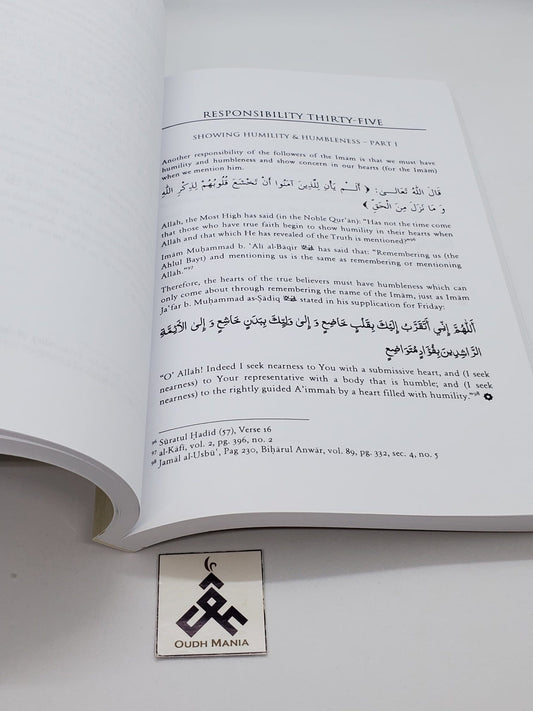 RESPONSIBILITY THIRTY-FIVE
SHOWING HUMILITY & HUMBLENESS – PART I
Another responsibility of the followers of the Imām is that we must have
humility and humbleness and show concern in our hearts (for the Imām)
when we mention him.
قَالَ اللهُ تَعَالىٰ: ﴿ أَلَمْ يَأْنِ لِلَّذِينَ آمَنُوا أَنْ تَخْشَعَ قُلُوبُهُمْ لِذِكْرِ اللهِ
وَ مَا نَزَلَ مِنَ الْحَقِّ ﴾
Allāh, the Most High has said (in the Noble Qur'ān): "Has not the time come
that those who have true faith begin to show humility in their hearts when
Allāh and that which He has revealed of the Truth is mentioned?"96
Imām Muḥammad b. 'Alī al-Bāqir has said that: "Remembering us (the
Ahlul Bayt) and mentioning us is the same as remembering or mentioning
Allāh."97
Therefore, the hearts of the true believers must have humbleness which can
only come about through remembering the name of the Imām, just as Imām
Ja'far b. Muḥammad as-Ṣādiq stated in his supplication for Friday:
أَللّٰهُمَّ إِنِّي أَتَقَرَّبُ إِلَيْكَ بِقَلْبٍ خَاضِعٍ وَ إِلىٰ وَلِيِّكَ بِبَدَنٍ خَاشِعٍ وَ إِلىٰ الأَئِمَّةِ
الرَّاشِدِينَ بِفُؤَادٍ مُتَوَاضِعٍ
"O' Allāh! Indeed I seek nearness to You with a submissive heart, and (I seek
nearness) to Your representative with a body that is humble; and (I seek
nearness) to the rightly guided A'immah by a heart filled with humility."98
96 Sūratul Ḥadīd (57), Verse 16
97 al-Kāfī, vol. 2, pg. 396, no. 2
98 Jamāl al-Usbū', Pag 230, Biḥārul Anwār, vol. 89, pg. 332, sec. 4, no. 5
OUDH MANIA